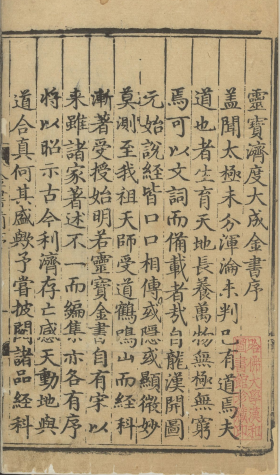 靈寶濟度大成金書序
蓋聞太極未分渾淪未判已有道焉夫
道也者生育天地長養萬物無極無窮
焉可以文詞而備載者哉自龍漢開圖
元始說經皆口口相傳或隱或顯微妙
莫測至我祖天師受道鶴鳴山而經科
漸著受授始明若靈寶金書自有宋以
来雖諸家著述不一而編集亦各有序
將以昭示古今利濟存亡感天動地與
道合真何其盛歟予嘗披閱諸品經科